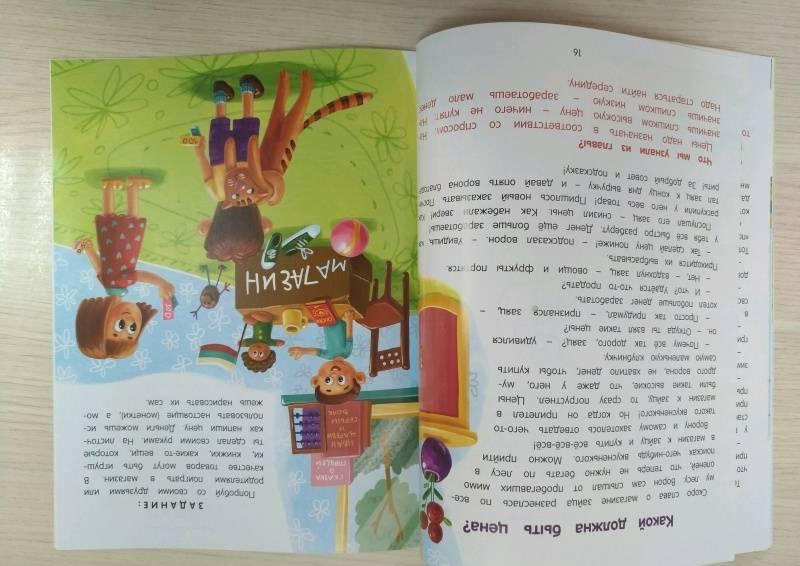 Какой должна быть цена?
Скоро слава о магазине зайца разнеслась по все-
му лесу. Ворон сам слышал от пробегавших мимо
оленей, что теперь не нужно бегать по лесу в
поисках чего-нибудь вкусненького. Можно прийти
в магазин к зайцу и купить всё-всё-всё!
Ворону и самому захотелось отведать чего-то
такого вкусненького! Но когда он прилетел в
магазин к зайцу, то сразу погрустнел. Цены
были такие высокие, что даже у него, му-
дрого ворона, не хватило денег, чтобы купить
самую маленькую клубничку.
– Почему всё так дорого, заяц? – удивился
он. – Откуда ты взял такие цены?
– Просто так придумал, – признался заяц, –
хотел побольше денег заработать.
– И что? Удаётся что-то продать?
– Нет, – вздохнул заяц, – овощи и фрукты портятся.
Приходится их выбрасывать.
– Так сделай цену пониже! – подсказал ворон. – Увидишь, как
у тебя всё быстро разберут. Денег ещё больше заработаешь!
Послушал его заяц – снизил цены. Как набежали звери! Как
раскупили у него весь товар! Пришлось новый заказывать. Посчи-
тал заяц к концу дня выручку – и давай опять ворона благода-
рить! За добрый совет и подсказку!
Что мы узнали из главы?
Цены надо назначать в соответствии со спросом. На-
значишь слишком высокую цену – ничего не купят. На-
значишь слишком низкую – заработаешь мало денег.
Надо стараться найти середину.
16
ЗАДАНИЕ:
Попробуй со своими друзьями или
родителями поиграть в магазин. В
качестве товаров могут быть игруш-
ки, книжки, какие-то вещи, которые
ты сделал своими руками. На листоч-
ках напиши цену! Деньги можешь ис-
пользовать настоящие (монетки), а мо-
жешь нарисовать их сам.
СКАЗКА
О
ИВАН
ЦАРЕВИЧ
И
СЕРЫЙ
ВОЛК
МАГАЗИН
100